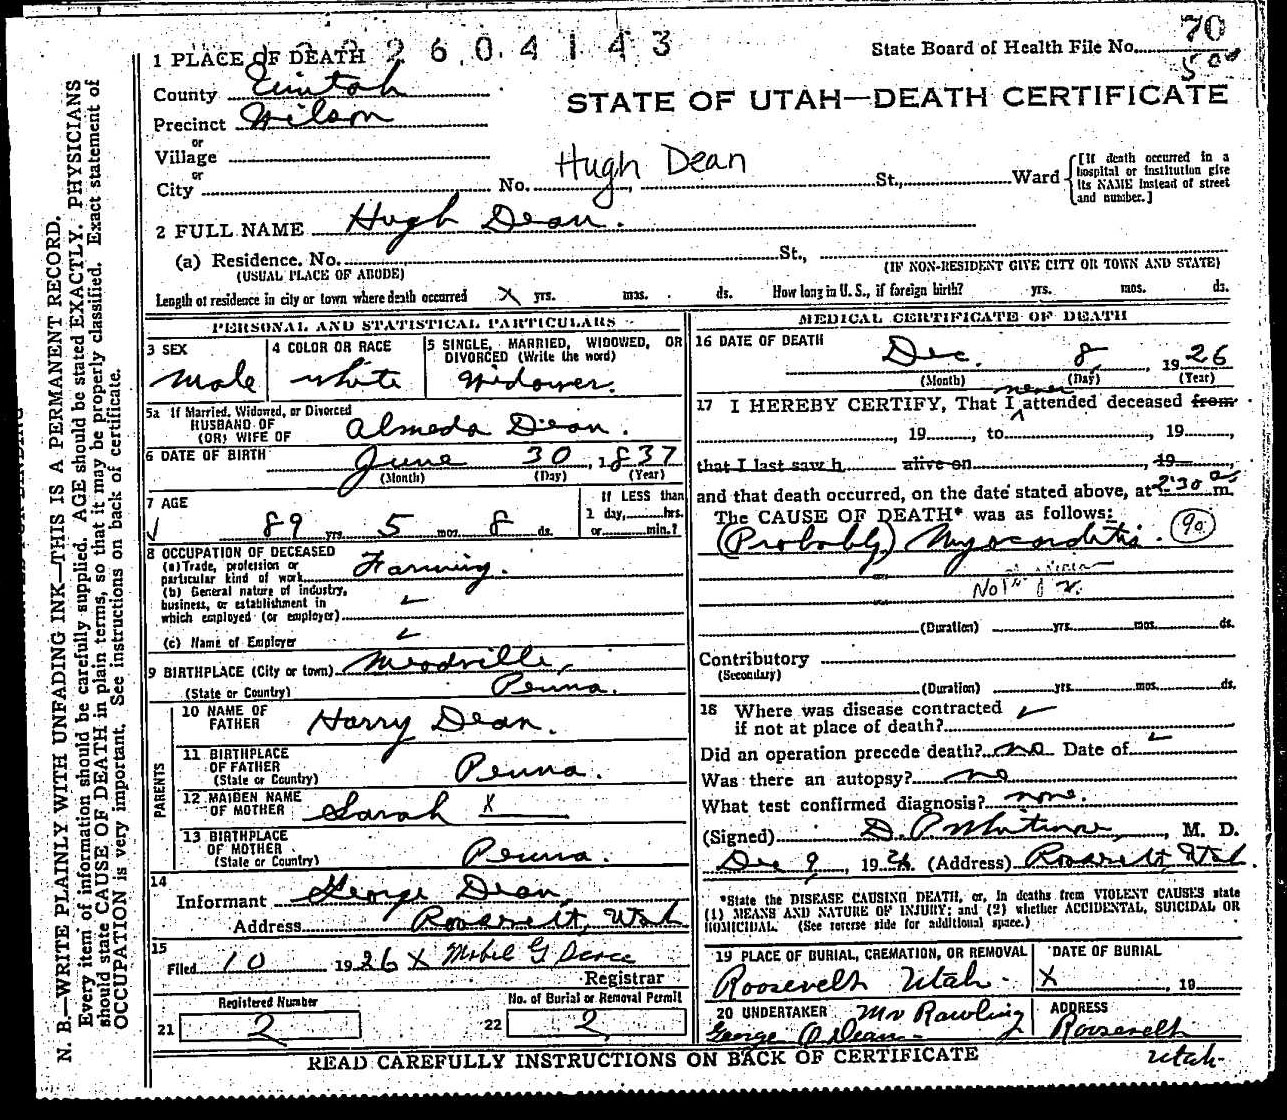 2604143
1 PLACE OF DEATH
State Board of Health File No. 70
500
County Uintah
STATE OF UTAH—DEATH CERTIFICATE
Precinct Wilson
or
Village
or
City No. Hugh Dean St., Ward
[If death occurred in a hospital or institution give its NAME instead of street and number.]
2 FULL NAME Hugh Dean.
(a) Residence. No. St.,
(USUAL PLACE OF ABODE) (IF NON-RESIDENT GIVE CITY OR TOWN AND STATE)
Length of residence in city or town where death occurred X yrs. mos. ds. How long in U. S., if foreign birth? yrs. mos. ds.
PERSONAL AND STATISTICAL PARTICULARS
3 SEX
Male
4 COLOR OR RACE
white
5 SINGLE, MARRIED, WIDOWED, OR DIVORCED (Write the word)
Widower.
5a If Married, Widowed, or Divorced
HUSBAND OF
(OR) WIFE OF Almeda Dean.
6 DATE OF BIRTH June 30, 1837
(Month) (Day) (Year)
7 AGE
89 yrs. 5 mos. 8 ds.
If LESS than
1 day, hrs.
or min.?
8 OCCUPATION OF DECEASED
(a) Trade, profession or
particular kind of work Farming.
(b) General nature of industry,
business, or establishment in
which employed (or employer)
(c) Name of Employer
9 BIRTHPLACE (City or town) Meadville,
(State or Country) Penna.
PARENTS
10 NAME OF
FATHER Harry Dean.
11 BIRTHPLACE
OF FATHER
(State or Country) Penna.
12 MAIDEN NAME
OF MOTHER Sarah X
13 BIRTHPLACE
OF MOTHER
(State or Country) Penna.
14
Informant George Dean,
Address Roosevelt, Utah
15
Filed 10 1926 X Mabel G
Registrar
Registered Number
21 2
No. of Burial or Removal Permit
22 2
MEDICAL CERTIFICATE OF DEATH
16 DATE OF DEATH
Dec. 8, 1926
(Month) (Day) (Year)
never
17 I HEREBY CERTIFY, That I attended deceased from
, 19 , to , 19
that I last saw h alive on , 19
and that death occurred, on the date stated above, at 2:30 a m.
The CAUSE OF DEATH* was as follows:
(Probably) Myocarditis. 90
(Duration) yrs. mos. ds.
Contributory
(Secondary)
(Duration) yrs. mos. ds.
18 Where was disease contracted
if not at place of death?
Did an operation precede death? no Date of
Was there an autopsy? no
What test confirmed diagnosis? none.
(Signed) D. P. , M. D.
Dec 9, 1926 (Address) Roosevelt, Utah.
*State the DISEASE CAUSING DEATH, or, in deaths from VIOLENT CAUSES state
(1) MEANS AND NATURE OF INJURY; and (2) whether ACCIDENTAL, SUICIDAL OR
HOMICIDAL. (See reverse side for additional space.)
19 PLACE OF BURIAL, CREMATION, OR REMOVAL
Roosevelt Utah.
DATE OF BURIAL
X , 19
20 UNDERTAKER Mr Rawling
George O Dean
ADDRESS
Roosevelt
Utah
READ CAREFULLY INSTRUCTIONS ON BACK OF CERTIFICATE
N. B.—WRITE PLAINLY WITH UNFADING INK—THIS IS A PERMANENT RECORD.
Every item of information should be carefully supplied. AGE should be stated EXACTLY. PHYSICIANS
should state CAUSE OF DEATH in plain terms, so that it may be properly classified. Exact statement of
OCCUPATION is very important. See instructions on back of certificate.